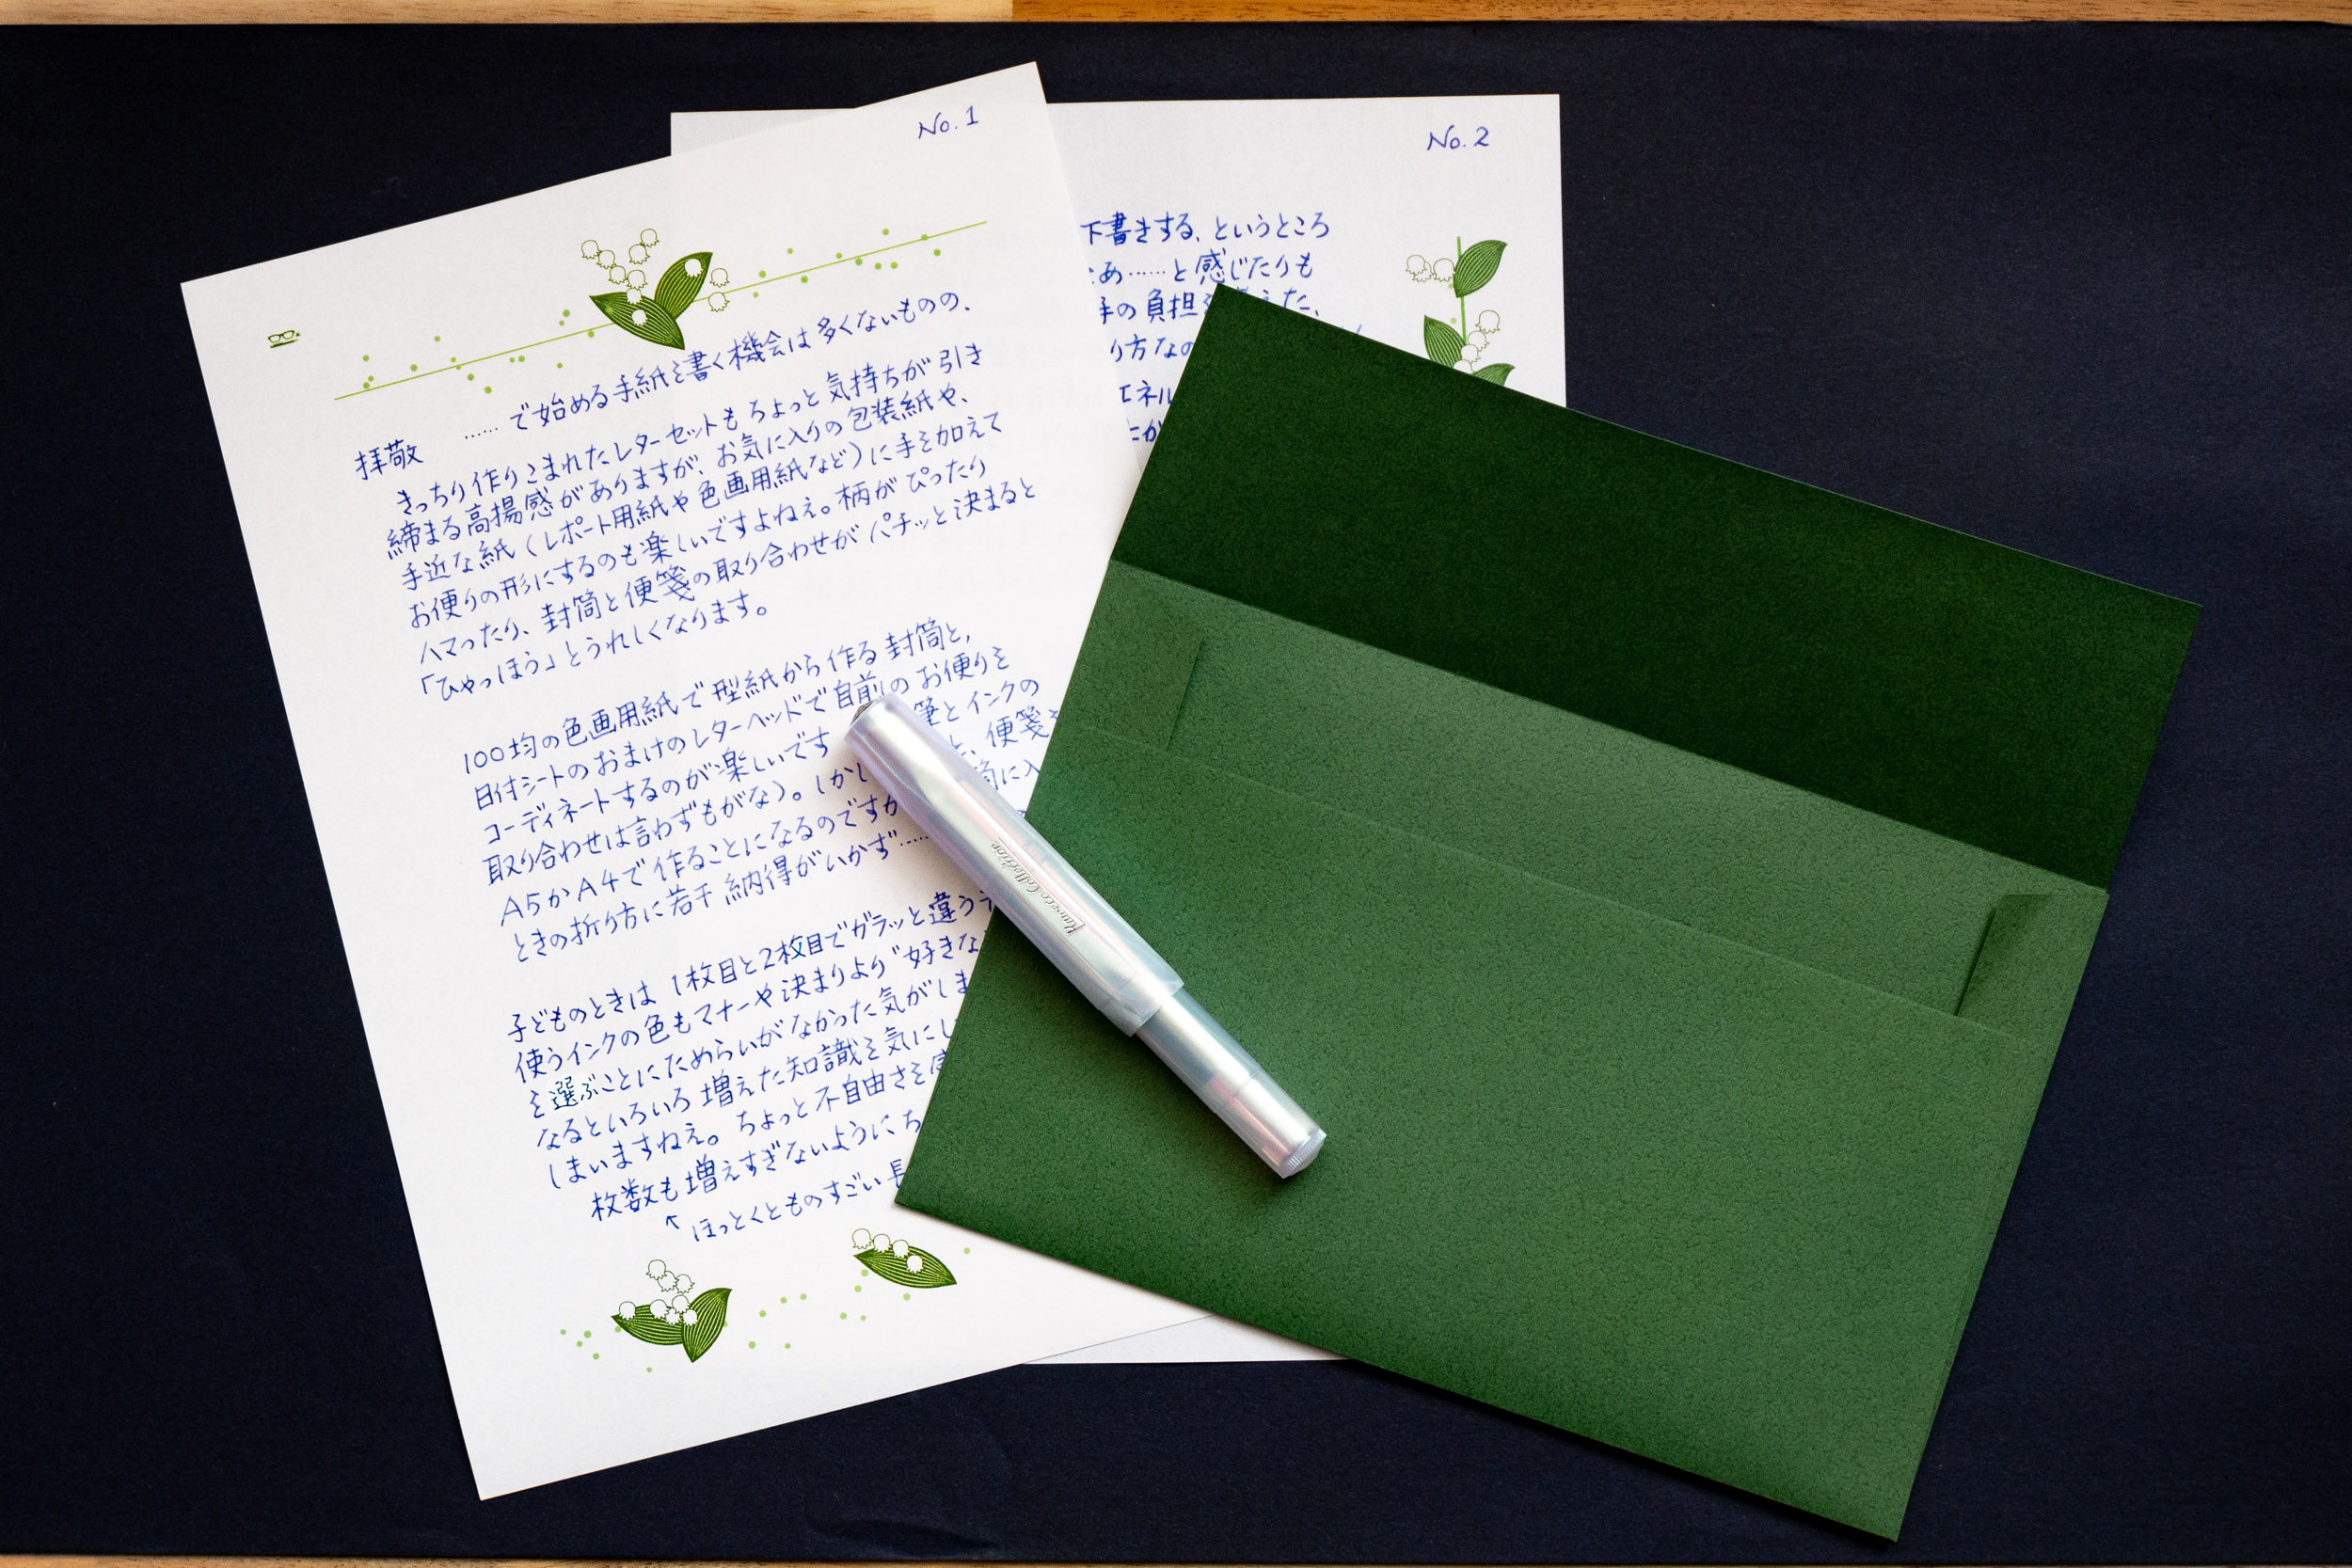 No. 1
拝敬 ……で始める手紙を書く機会は多くないものの、
きっちり作りこまれたレターセットもちょっと気持ちが引き
締まる高揚感がありますが、お気に入りの包装紙や、
手近な紙（レポート用紙や色画用紙など）に手を加えて
お便りの形にするのも楽しいですよねぇ。柄がぴったり
ハマったり、封筒と便箋の取り合わせがパチッと決まると
「ひゃっほう」とうれしくなります。
100均の色画用紙で型紙から作る封筒と、
日付シートのおまけのレターヘッドで自前のお便りを
コーディネートするのが楽しいです 筆とインクの
取り合わせは言わずもがな）。しかし 、便箋を
A5かA4で作ることになるのですが 筒に入
ときの折り方に若干納得がいかず……
子どものときは1枚目と2枚目でガラッと違う
使うインクの色もマナーや決まりより“好きな
を選ぶことにためらいがなかった気がしま
なるといろいろ増えた知識を気にし
しまいますねぇ。ちょっと不自由さを感
枚数も増えすぎないように ち
↖ ほっとくとものすごい長
No. 2
下書きする、というところ
なあ……と感じたりも
手の負担 た、
り方なの
エネル
たか
Kaweco Collection